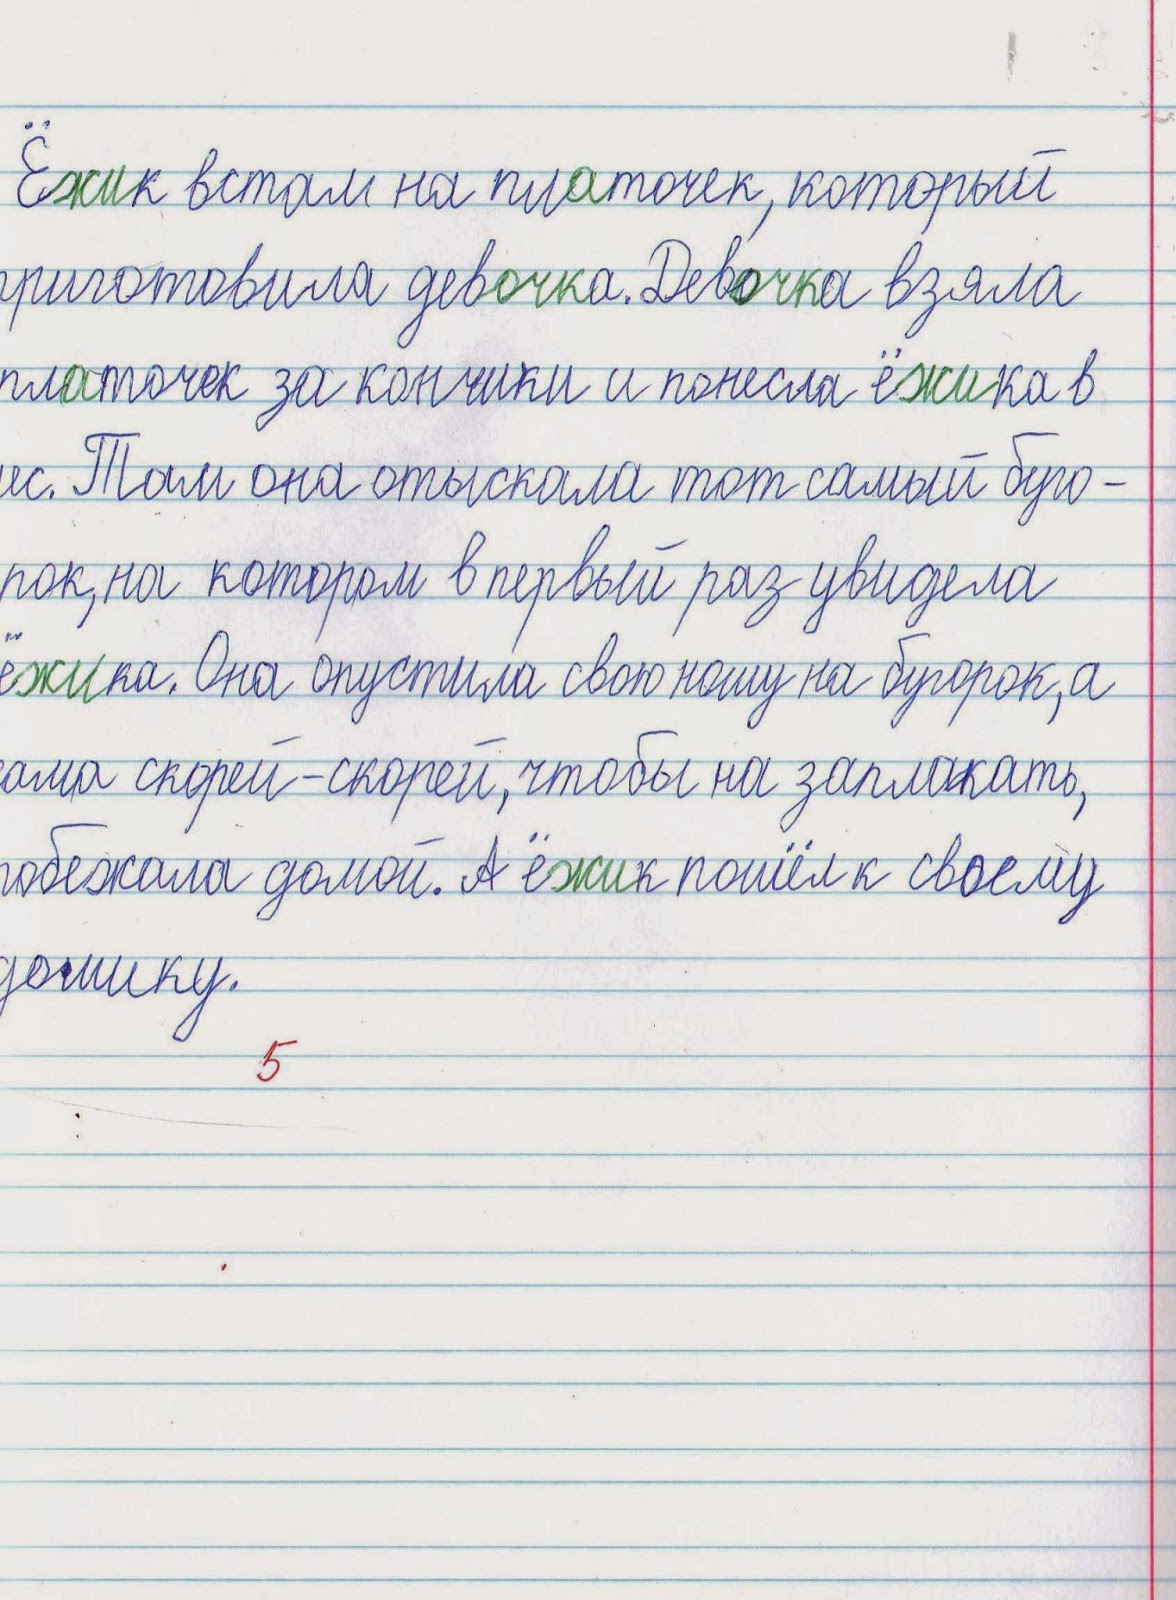 Ёжик встал на платочек, который
приготовила девочка. Девочка взяла
платочек за кончики и понесла ёжика в
лес. Там она отыскала тот самый буго-
рок, на котором в первый раз увидела
ёжика. Она опустила свою ношу на бугорок, а
сама скорей-скорей, чтобы на заплакать,
побежала домой. А ёжик пошёл к своему
домику.
5